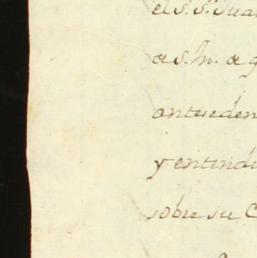 el S. S. Jua
a S. M. a q
anteceden
y entendi
sobre su C